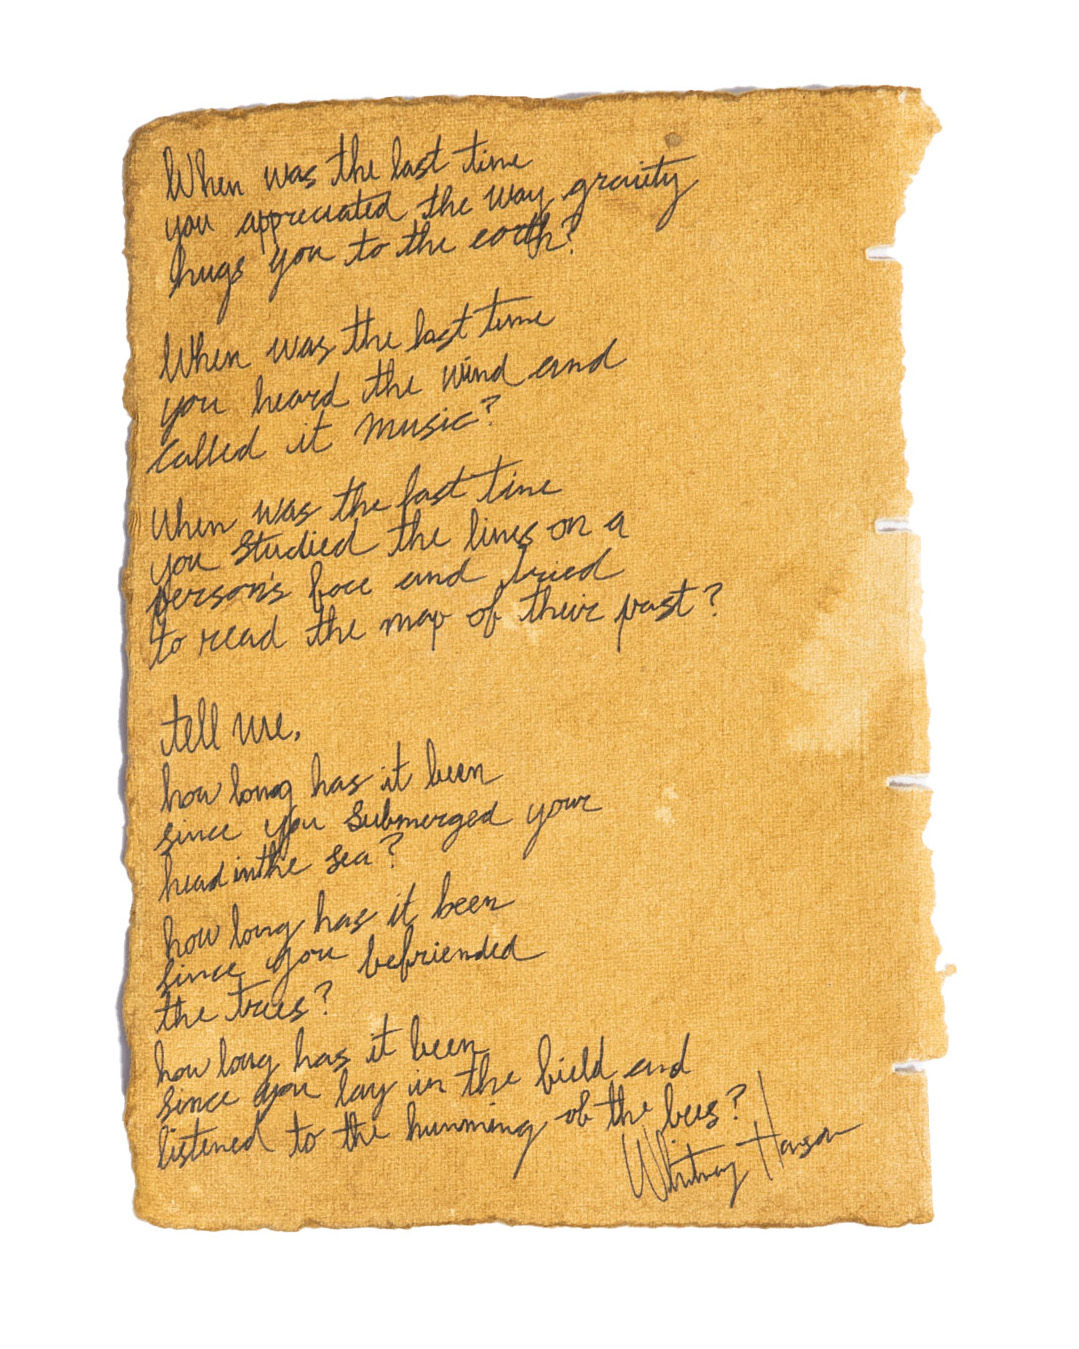 When was the last time
you appreciated the way gravity
hugs you to the earth?
When was the last time
you heard the wind and
called it music?
When was the last time
you studied the lines on a
person's face and tried
to read the map of their past?
tell me,
how long has it been
since you submerged your
head in the sea?
how long has it been
since you befriended
the trees?
how long has it been
since you lay in the field and
listened to the humming of the bees?
Whitney Hanson